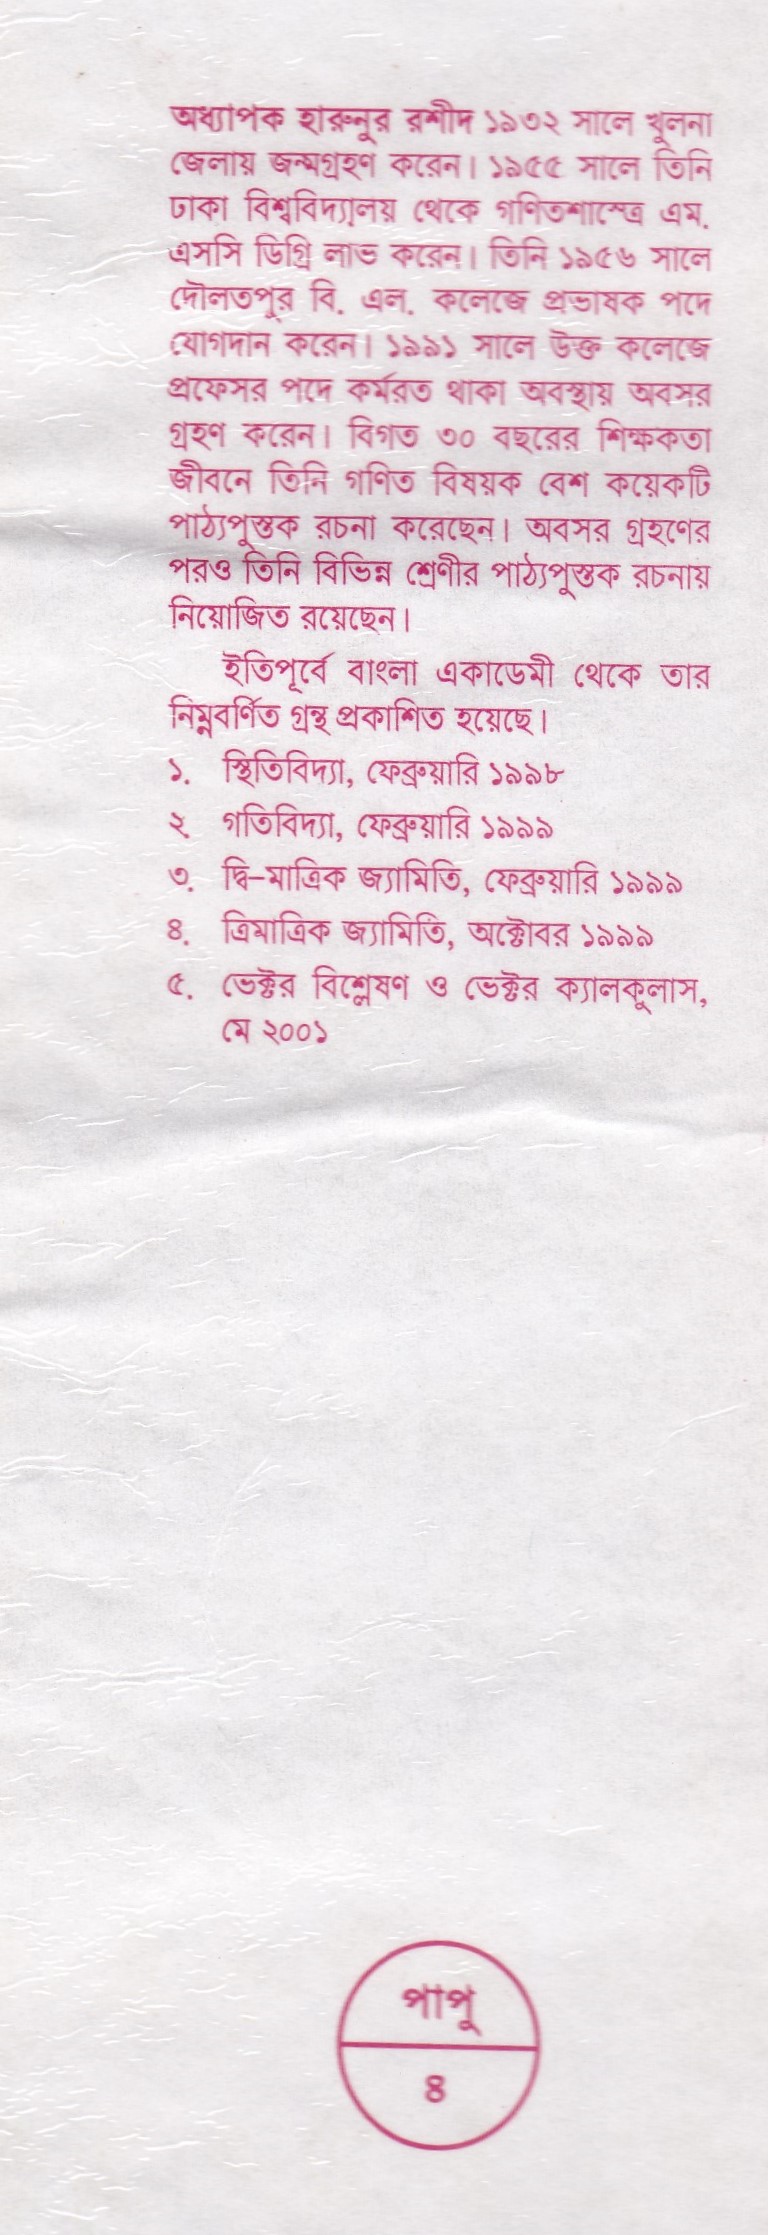 অধ্যাপক হারুনুর রশীদ ১৯৩২ সালে খুলনা
জেলায় জন্মগ্রহণ করেন। ১৯৫৫ সালে তিনি
ঢাকা বিশ্ববিদ্যালয় থেকে গণিতশাস্ত্রে এম.
এসসি ডিগ্রি লাভ করেন। তিনি ১৯৫৬ সালে
দৌলতপুর বি. এল. কলেজে প্রভাষক পদে
যোগদান করেন। ১৯৯১ সালে উক্ত কলেজে
প্রফেসর পদে কর্মরত থাকা অবস্থায় অবসর
গ্রহণ করেন। বিগত ৩০ বছরের শিক্ষকতা
জীবনে তিনি গণিত বিষয়ক বেশ কয়েকটি
পাঠ্যপুস্তক রচনা করেছেন। অবসর গ্রহণের
পরও তিনি বিভিন্ন শ্রেণীর পাঠ্যপুস্তক রচনায়
নিয়োজিত রয়েছেন।
ইতিপূর্বে বাংলা একাডেমী থেকে তার
নিম্নবর্ণিত গ্রন্থ প্রকাশিত হয়েছে।
১. স্থিতিবিদ্যা, ফেব্রুয়ারি ১৯৯৮
২ গতিবিদ্যা, ফেব্রুয়ারি ১৯৯৯
৩. দ্বি-মাত্রিক জ্যামিতি, ফেব্রুয়ারি ১৯৯৯
৪. ত্রিমাত্রিক জ্যামিতি, অক্টোবর ১৯৯৯
৫. ভেক্টর বিশ্লেষণ ও ভেক্টর ক্যালকুলাস,
মে ২০০১
পাপু
৪